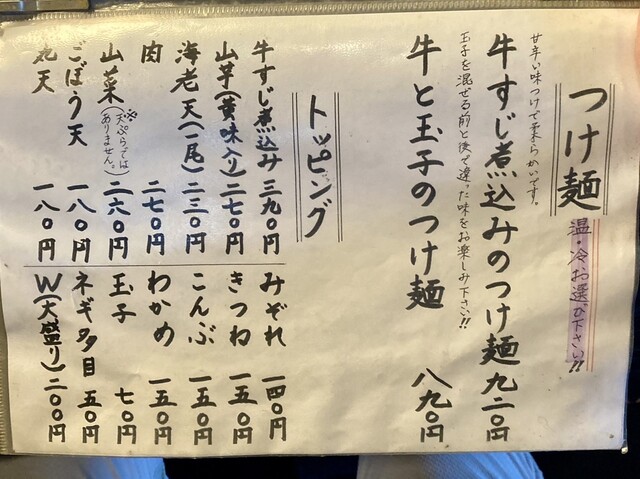 つけ麺
温・冷お選び下さい!!
牛すじ煮込みのつけ麺 九二〇円
甘辛い味つけで柔らかいです。
牛と玉子のつけ麺 八九〇円
玉子を混ぜる前と後で違った味をお楽しみ下さい!!
トッピング
牛すじ煮込み 三九〇円
山芋(黄味入り) 二七〇円
海老天(一尾) 二三〇円
肉 二七〇円
山菜(※天ぷらではありません。) 二六〇円
ごぼう天 一八〇円
丸天 一八〇円
みぞれ 一四〇円
きつね 一五〇円
こんぶ 一五〇円
わかめ 一五〇円
玉子 七〇円
ネギ多目 五〇円
W(大盛り) 二〇〇円